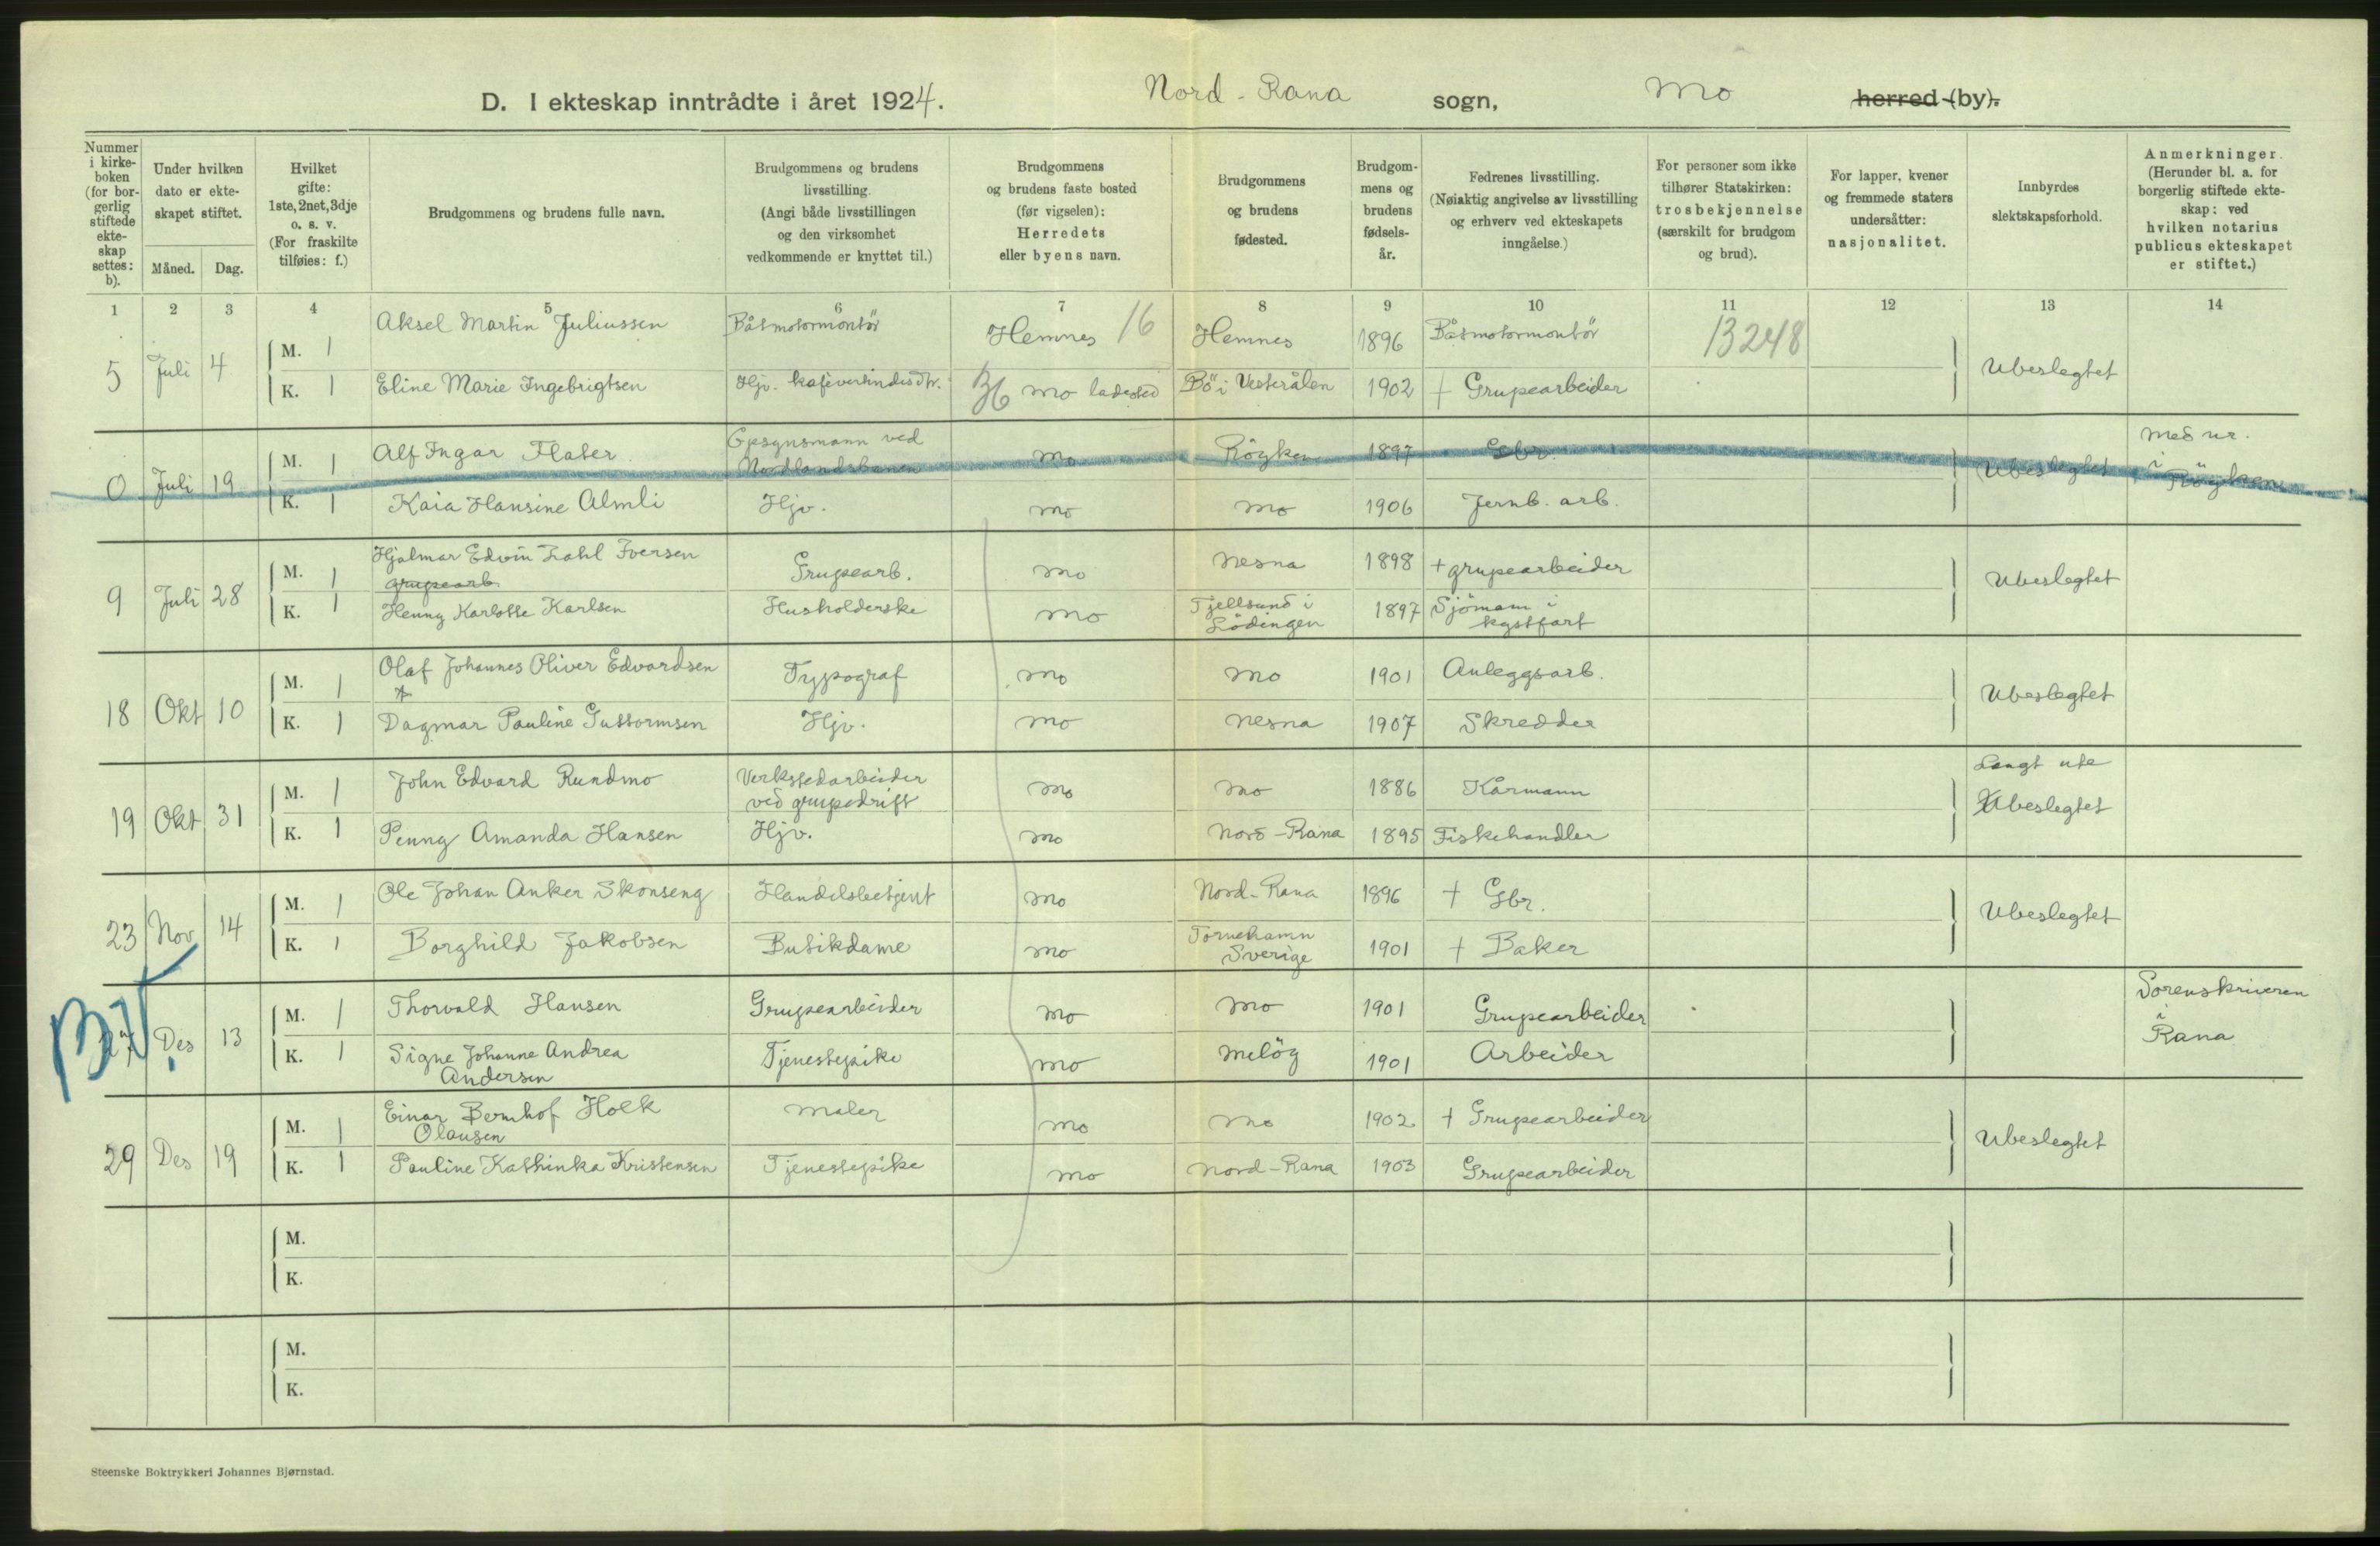 D. I ekteskap inntrådte i året 1924. Nord-Rana sogn, Mo herred (by).
Nummer i kirke-boken (for bor-gerlig stiftede ekte-skap settes: b).
Under hvilken dato er ekte-skapet stiftet.
Måned. Dag.
Hvilket gifte: 1ste, 2net, 3dje o. s. v. (For fraskilte tilføies: f.)
Brudgommens og brudens fulle navn.
Brudgommens og brudens livsstilling. (Angi både livsstillingen og den virksomhet vedkommende er knyttet til.)
Brudgommens og brudens faste bosted (før vigselen): Herredets eller byens navn.
Brudgommens og brudens fødested.
Brudgom-mens og brudens fødsels-år.
Fedrenes livsstilling. (Nøiaktig angivelse av livsstilling og erhverv ved ekteskapets inngåelse.)
For personer som ikke tilhører Statskirken: trosbekjennelse (særskilt for brudgom og brud).
For lapper, kvener og fremmede staters undersåtter: nasjonalitet.
Innbyrdes slektskapsforhold.
Anmerkninger. (Herunder bl. a. for borgerlig stiftede ekte-skap: ved hvilken notarius publicus ekteskapet er stiftet.)
1 2 3 4 5 6 7 8 9 10 11 12 13 14
5 Juli 4
M. 1 Aksel Martin Juliussen Båtmotormontör Hemnes 16 Hemnes 1896 Båtmotormontör 13248
K. 1 Eline Marie Ingebrigtsen Hjv. kafévertindedtr. Mo ladested Bö i Vesterålen 1902 + Grupearbeider Ubeslegtet
0 Juli 19
M. 1 Alf Ingar Flater Opsynsmann ved Nordlandsbanen Mo Röyken 1897 Gbr. Ubeslegtet Med nr. i Röyken
K. 1 Kaia Hansine Almli Hjv. Mo Mo 1906 Jernb. arb.
9 Juli 28
M. 1 Hjalmar Edvin Zahl Iversen grupearb. Grupearb. Mo Nesna 1898 + grupearbeider Ubeslegtet
K. 1 Henny Karlotte Karlsen Husholderske Mo Tjellsund i Lödingen 1897 Sjömann i kystfart
18 Okt 10
M. 1 Olaf Johannes Oliver Edvardsen Typograf Mo Mo 1901 Anleggsarb. Ubeslegtet
K. 1 Dagmar Pauline Guttormsen Hjv. Mo Nesna 1907 Skredder
19 Okt 31
M. 1 John Edvard Rundmo Verkstedarbeider ved grupedrift Mo Mo 1886 Kårmann Langt ute Ubeslegtet
K. 1 Penny Amanda Hansen Hjv. Mo Nord-Rana 1895 Fiskehandler
23 Nov 14
M. 1 Ole Johan Anker Skonseng Handelsbetjent Mo Nord-Rana 1896 + Gbr. Ubeslegtet
K. 1 Borghild Jakobsen Butikdame Mo Tornehamn Sverige 1901 + Baker
Des 13
M. 1 Thorvald Hansen Grupearbeider Mo Mo 1901 Grupearbeider Sorenskriveren i Rana
K. 1 Signe Johanne Andrea Andersen Tjenestepike Mo Melöy 1901 Arbeider
29 Des 19
M. 1 Einar Bernhof Holk Olausen Maler Mo Mo 1902 + Grupearbeider Ubeslegtet
K. 1 Pauline Kathinka Kristensen Tjenestepike Mo Nord-Rana 1903 Grupearbeider
M.
K.
M.
K.
Steenske Boktrykkeri Johannes Bjørnstad.